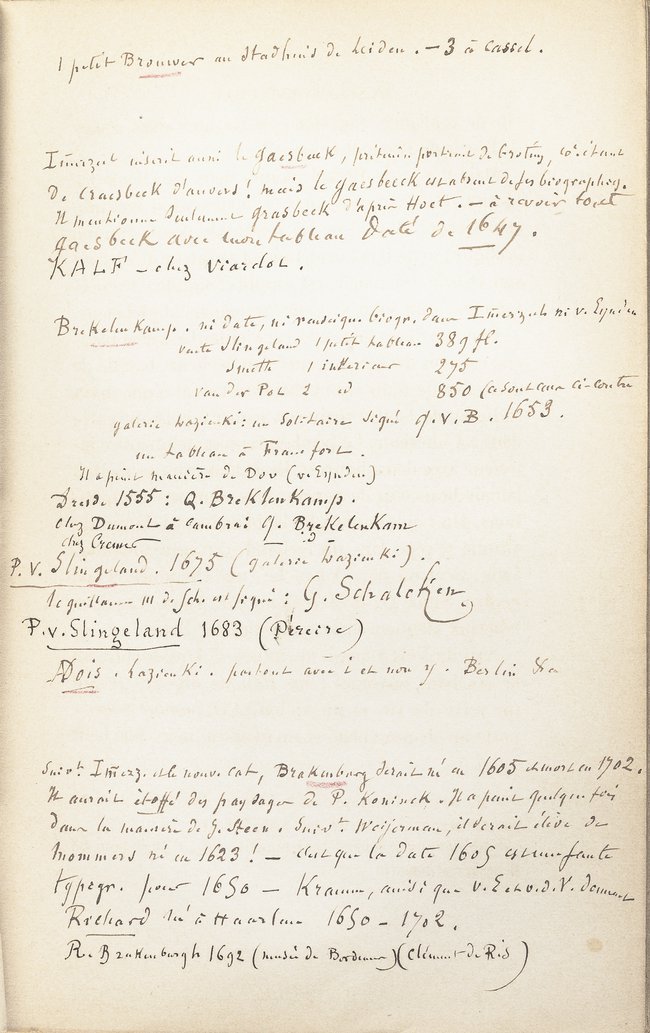 1 petit Brouwer au Stadhuis de Leiden. – 3 à Cassel.
Im̄erzeel inscrit aussi le gaesbeeck, prétendu portrait de Grotius, co. étant
De Craesbeck d'anvers! mais le gaesbeeck est absent de ses biographies.
Il mentionne seulement grasbeck d'après Hoet. – à revoir tout
gaesbeck avec mon tableau daté de 1647.
KALF – chez Viardot.
Brekelenkamp. ni date, ni renseign. biogr. dans Im̄erzeel ni v. Eynden
vente Slingeland 1 petit tableau 389 fl.
Smeth 1 intérieur 275
van der Pot 2 id 850 (ce sont ceux ci-contre
galerie Lazienki: un Solitaire signé q. v. B. 1653.
un tableau à Francfort.
Il a peint manière de Dov (v. Eynden)
Dresde 1555: Q. Breklenkamp.
chez Dumont à Cambrai q. Brekelenkam
chez Cremer id
P. v. Slingeland. 1675 (galerie Lazienki).
le guillaume III de Sch. est signé: G. Schalcken
P. v. Slingeland 1683 (Péreire)
ADois. Lazienki. partout avec i et non y. Berlin &a
Suivt. Im̄erz. et le nouv. cat, Brakenburg serait né en 1605 et mort en 1702.
Il aurait étoffé des paysages de P. Koninck. Il a peint quelquefois
dans la manière de J. Steen. Suivt. Weijerman, il serait élève de
Mommers né en 1623! – c'est que la date 1605 est une faute
typogr. pour 1650 – Kramm, ainsi que v. E et v. d. V. donnent
Richard né à Haarlem 1650 – 1702.
R. Brakenburgh 1692 (musée de Bordeaux) (Clément de Ris)